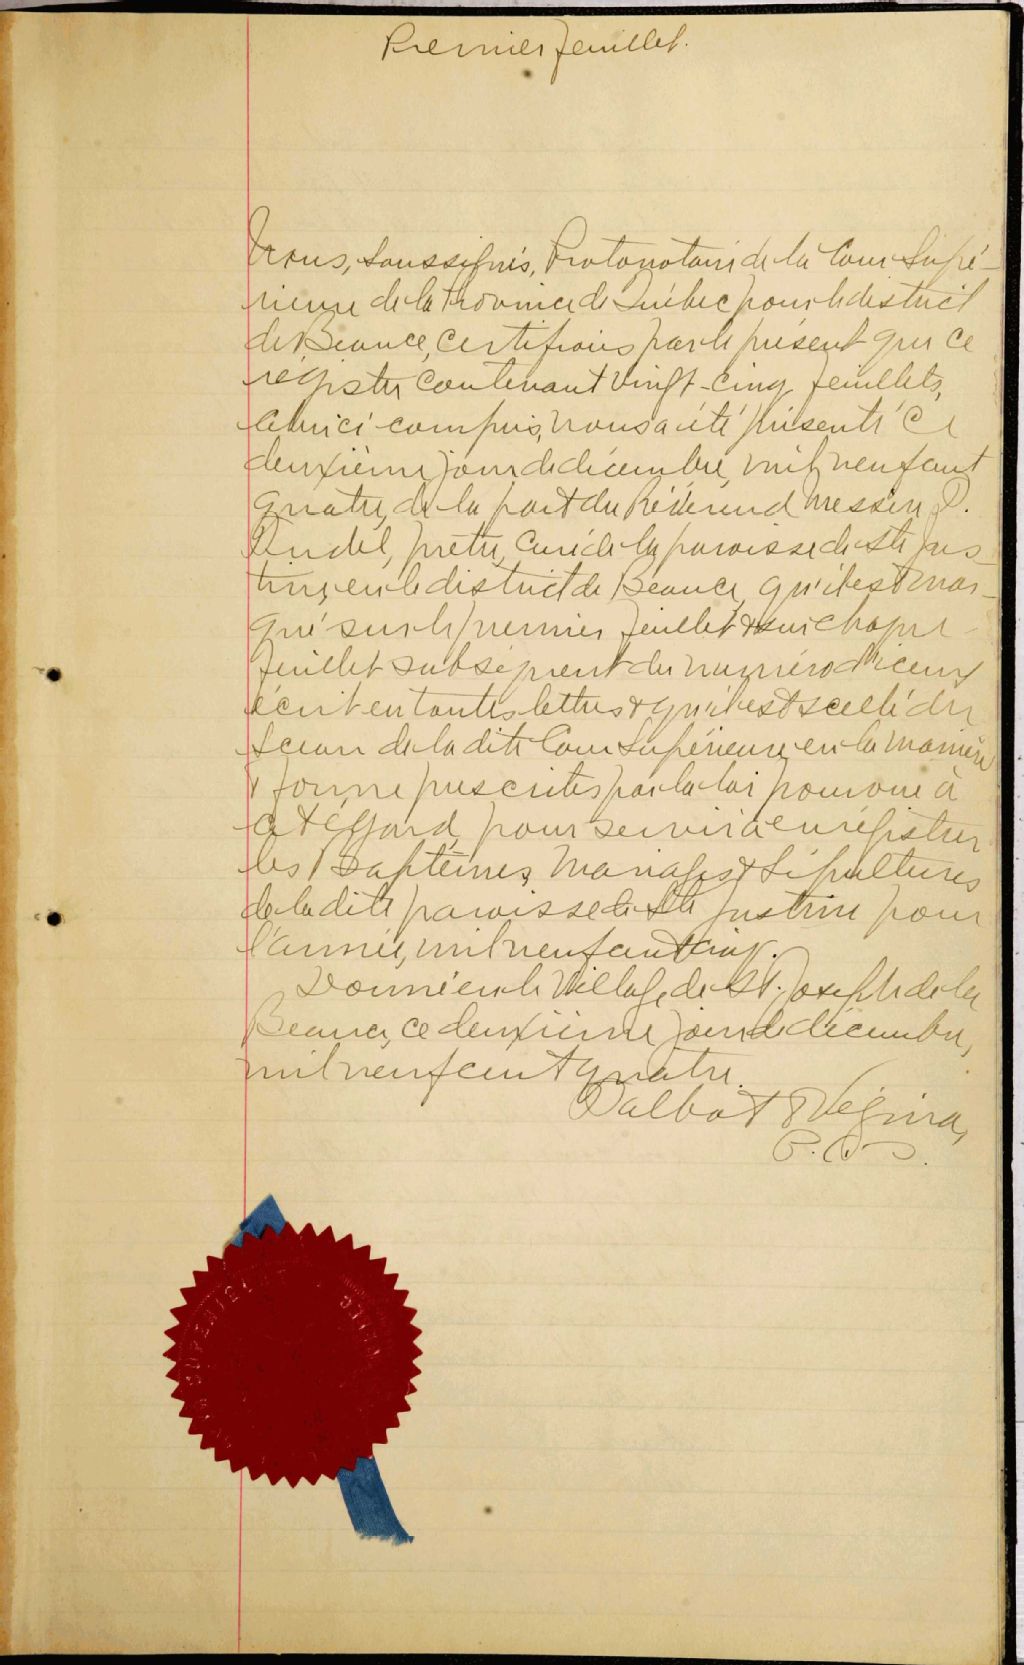 Premier feuillet.
Nous, soussignés, Protonotaire de la Cour Supé-
rieure de la Province de Québec pour le district
de Beauce, certifions par le présent que ce
régistre contenant vingt-cinq feuillets,
celui ci compris, nous a été présenté ce
deuxième jour de décembre, mil neuf cent
quatre, de la part du Révérend Messire
prêtre, Curé de la paroisse de Ste Jus-
tine, en le district de Beauce, qu'il est mar-
qué sur le premier feuillet & sur chaque
feuillet subséquent du numéro d'iceux
écrit en toutes lettres & qu'il est scellé du
sceau de la dite Cour Supérieure, en la manière
& forme prescrites par la loi pourvue à
cet égard, pour servir à enrégistrer
les Baptêmes, Mariages & Sépultures
de la dite paroisse de Ste Justine pour
l'année, mil neuf cent cinq.
Donné en le Village de St. Joseph de la
Beauce, ce deuxième jour de décembre,
mil neuf cent quatre.
Talbot & Vézina,
P.C.S.